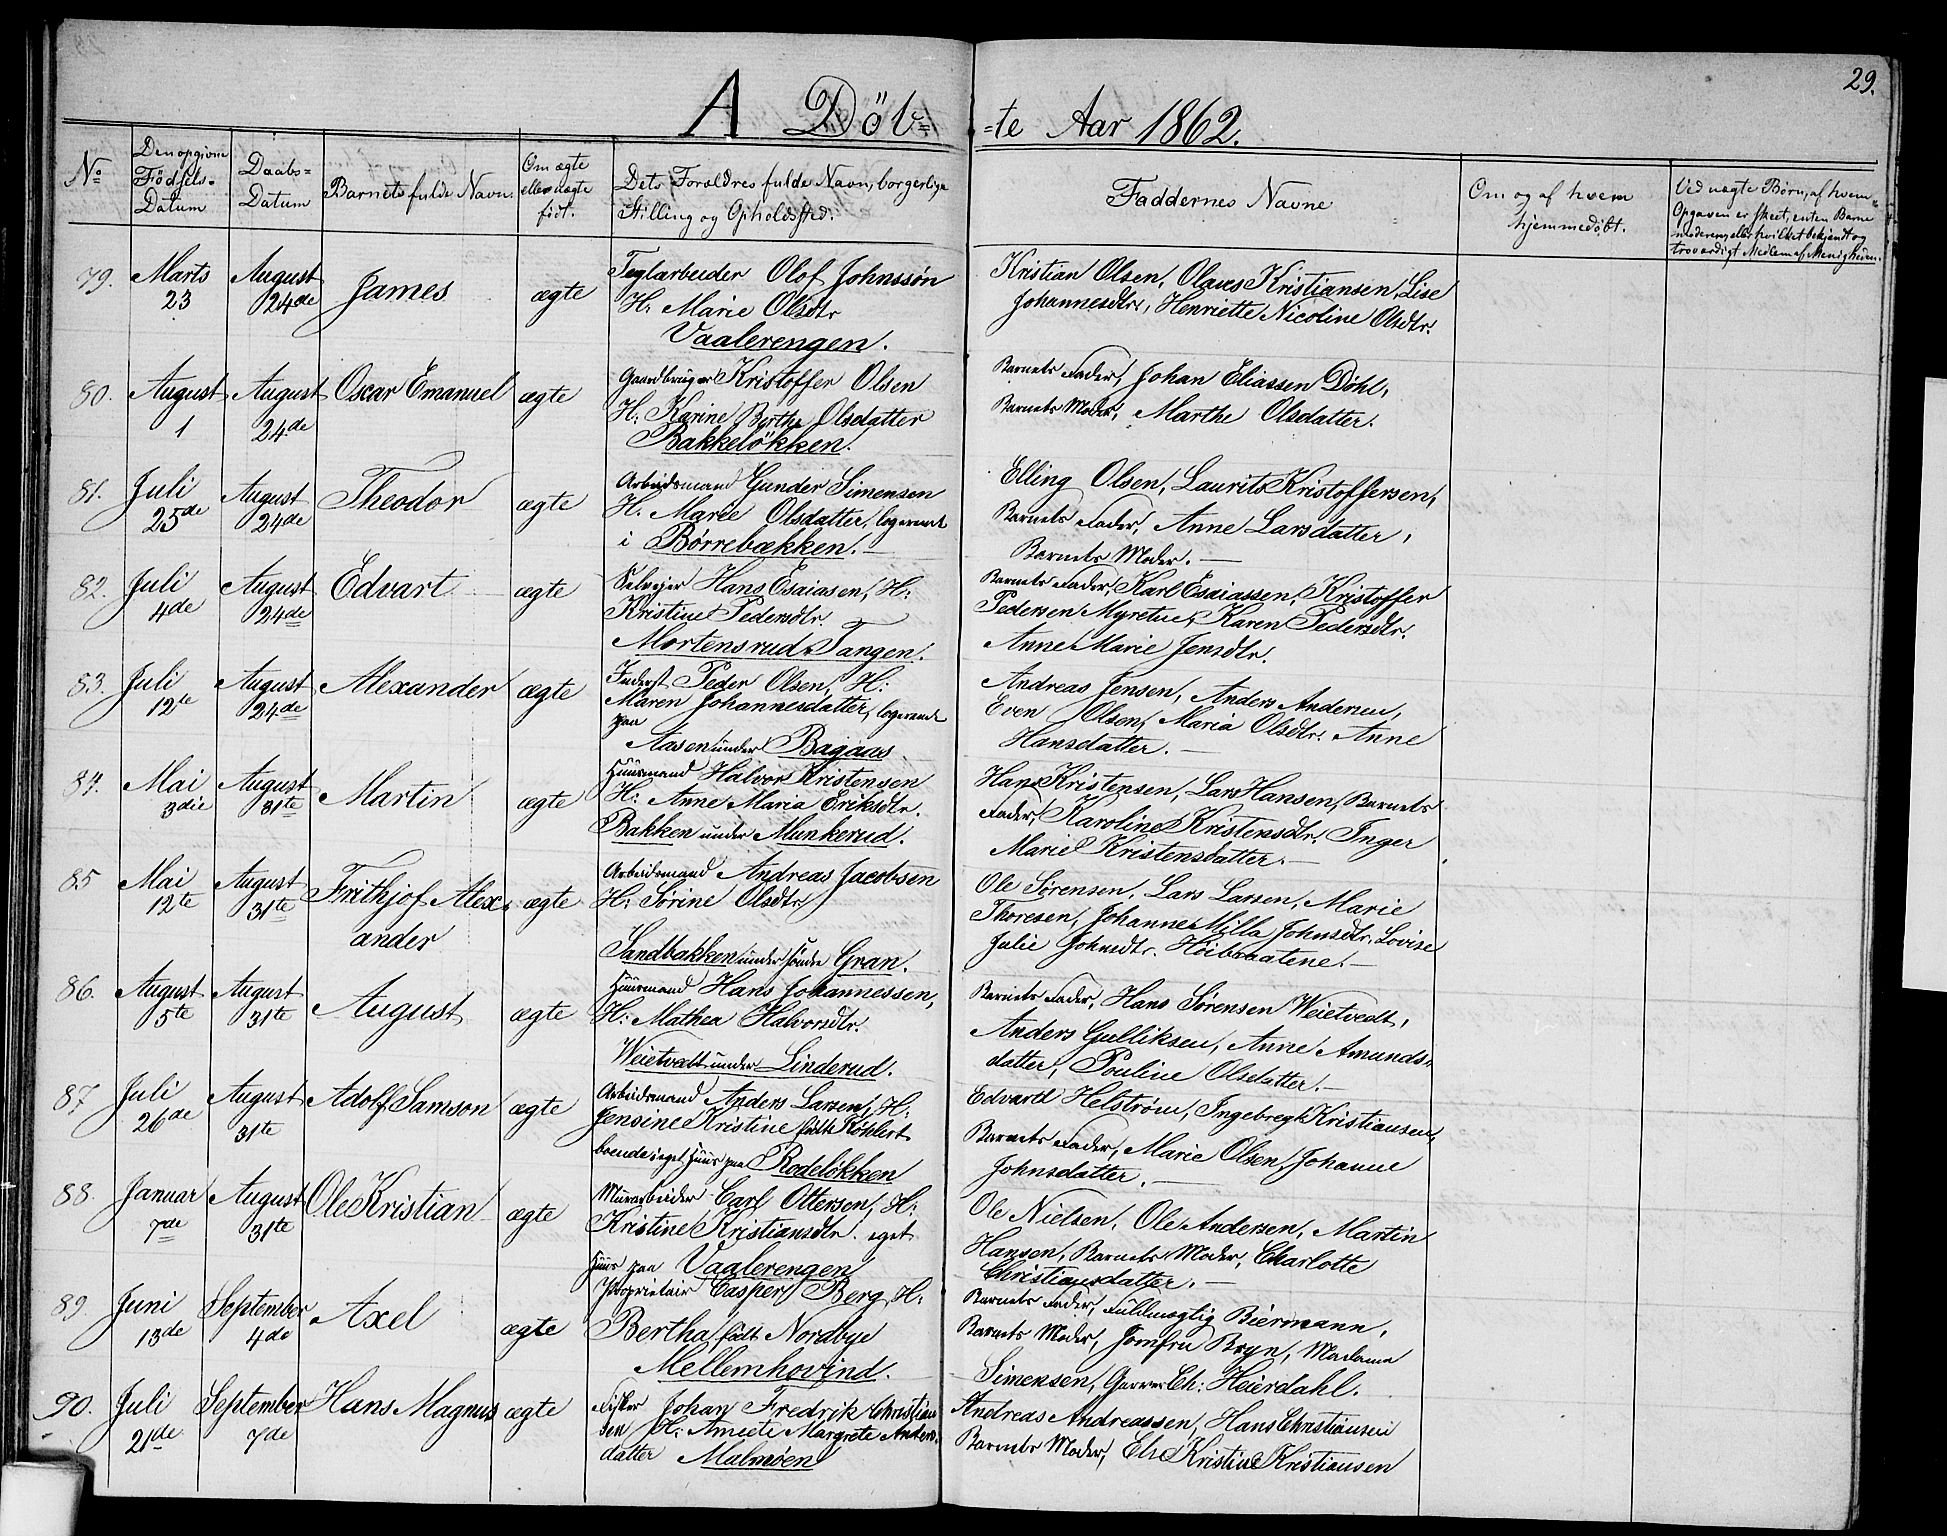 29.
A Døb=
=te Aar 1862.
No
Den opgivne Fødsels= Datum
Daabs= Datum
Barnets fulde Navn.
Om ægte eller uægte født.
Dets Forældres fulde Navn, borgerlige Stilling og Opholdssted.
Faddernes Navne
Om og af hvem hjemmedøbt.
Ved uægte Børn, af hvem Opgaven er skeet, enten Barne moderen, eller hvilket bekjendt og troværdigt Medlem af Menigheden.
79. Marts 23 August 24de James ægte
Teglarbeider Olof Johnssøn
H: Marie Olsdtr
Vaalerengen.
Kristian Olsen, Olaves Kristiansen, Lise
Johannesdtr., Henriette Nicoline Olsdtr.
80. August 1 August 24de Oscar Emanuel ægte
Gaardbruger Kristoffer Olsen
H: Karine Berthe Olsdatter
Bakkeløkken.
Barnets Fader, Johan Eliassen Døhl,
Barnets Moder, Marthe Olsdatter.
81. Juli 25de August 24de Theodor ægte
Arbeidsmand Gunder Simensen
H. Marie Olsdatter, logerende
i Børrebækken.
Elling Olsen, Laurits Kristoffersen,
Barnets Fader, Anne Larsdatter,
Barnets Moder.
82. Juli 4de August 24de Edvart ægte
Selveier Hans Esaiasen, H:
Kristine Pedersdtr.
Mortensrud Tangen.
Barnets Fader, Karl Esaiassen, Kristoffer
Pedersen Myretue, Karen Pedersdtr.
Anne Marie Jensdtr.
83. Juli 12te August 24de Alexander ægte
Inderst Peder Olsen, H:
Maren Johannesdatter, logerende
paa
Aasen under Bagaas
Andreas Jensen, Anders Andersen,
Even Olsen, Maria Olsdtr. Anne
Hansdatter.
84. Mai 3die August 31te Martin ægte
Huusmand Halvor Kristensen
H: Anne Maria Eriksdtr.
Bakken under Munkerud.
Hans Kristensen, Lars Hansen, Barnets
Fader, Karoline Kristensdtr. Inger
Marie Kristensdatter.
85 Mai 12te August 31te Frithjof Alex=
ander ægte
Arbeidsmand Andreas Jacobsen
H: Sørine Olsdtr
Sandbakken under søndre Gran.
Ole Sørensen, Lars Larsen, Marie
Thoresen, Johanne Milla Johnsdtr. Lovise
Julie Johnsdtr.
86. August 5te August 31te August ægte
Huusmand Hans Johannessen,
H: Mathea Halvorsdtr.
Weietvedt under Linderud.
Barnets Fader, Hans Sørensen Weietvedt,
Anders Gulliksen, Anne Amunds=
datter, Pouline Olsdatter.
87 Juli 26de August 31te Adolf Samson ægte
Arbeidsmand Anders Larsen, H:
Jensine Kristine født Køhlert
boende i eget Huus paa Rodeløkken
Edvard Helstrøm, Ingebregt Kristiansen,
Barnets Fader, Marie Olsen, Johanne
Johnsdatter.
88. Januar 7de August 31te Ole Kristian ægte
Murarbeider Carl Ottersen, H:
Kristine Kristiansdtr. eget
Huus paa Vaalerengen
Ole Nielsen, Ole Andersen, Martin
Hansen, Barnets Moder, Charlotte
Christiansdatter.
89. Juni 13de September 4de Axel ægte
Proprietair Casper Berg, H:
Bertha, født Nordbye
Mellemhovind.
Barnets Fader, Fuldmægtig Biermann,
Barnets Moder, Jomfru Bryn, Madame
Simensen, Garver Ch: Heierdahl.
90. Juli 21de September 7de Hans Magnus ægte
Fisker Johan Fredrik Christian
sen H: Margrete Anders=
datter Malmøen
Andreas Andreassen, Hans Christiansen
Barnets Moder, Else Kristine Kristiansen